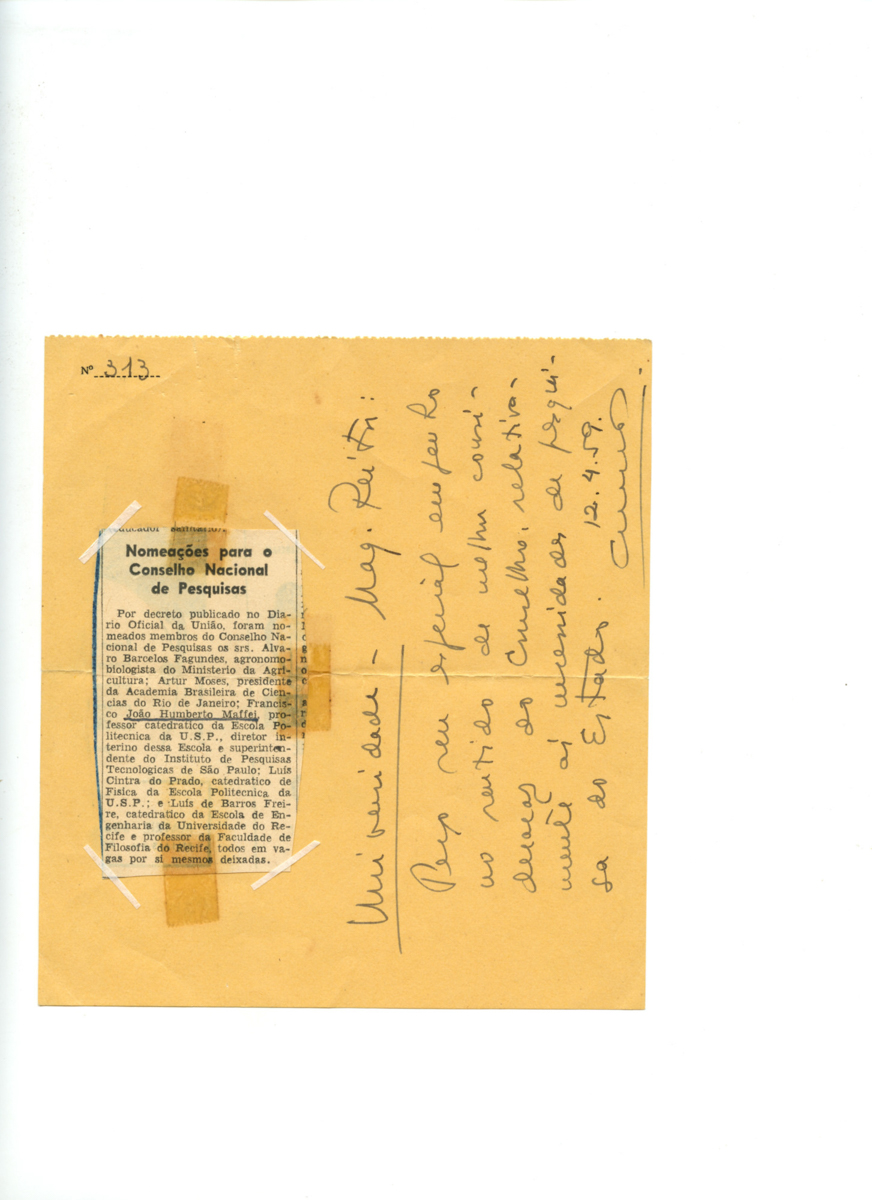 Nº 313
Nomeações para o
Conselho Nacional
de Pesquisas
Por decreto publicado no Dia-
rio Oficial da União, foram no-
meados membros do Conselho Na-
cional de Pesquisas os srs. Alva-
ro Barcelos Fagundes, agronomo-
biologista do Ministerio da Agri-
cultura; Artur Moses, presidente
da Academia Brasileira de Cien-
cias do Rio de Janeiro; Francis-
co João Humberto Maffei, pro-
fessor catedratico da Escola Po-
litecnica da U.S.P., diretor in-
terino dessa Escola e superinten-
dente do Instituto de Pesquisas
Tecnologicas de São Paulo; Luís
Cintra do Prado, catedratico de
Fisica da Escola Politecnica da
U.S.P.; e Luís de Barros Frei-
re, catedratico da Escola de En-
genharia da Universidade do Re-
cife e professor da Faculdade de
Filosofia do Recife, todos em va-
gas por si mesmos deixadas.
Universidade - Mag. Reitor:
Peço seu especial empenho
no sentido de melhor consi-
deração do Conselho, relativa-
mente às necessidades de pesqui-
sa do Estado. 12.4.59.